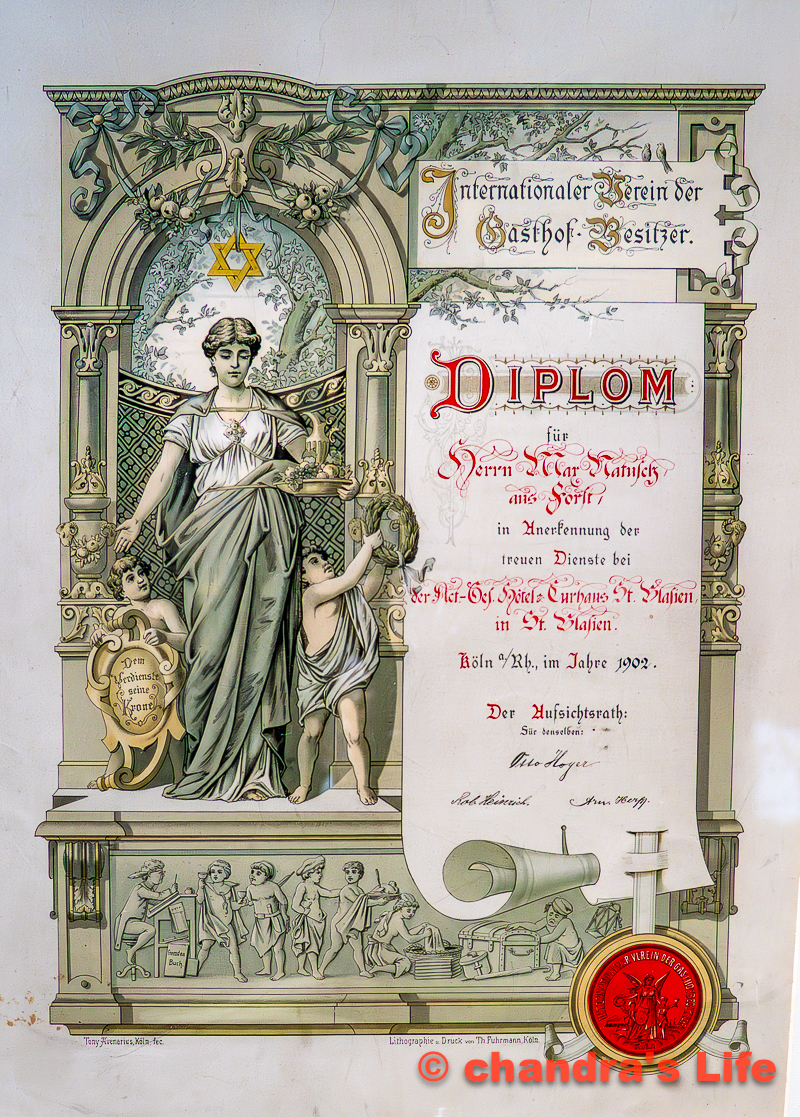 Internationaler Verein der
Gasthof-Besitzer.
DIPLOM
für
Herrn Max Matusch
aus Forst,
in Anerkennung der
treuen Dienste bei
der Act-Ges. Hôtel= Curhaus St. Blasien,
in St. Blasien.
Köln a/Rh., im Jahre 1902.
Der Aufsichtsrath:
Für denselben:
Otto Hoyer
Rob. Heinrich.
Dem
Verdienste
seine
Krone
Fremden
Buch
VEREIN DER GASTHOF
KÖLN
Tony Avenarius, Köln fec.
Lithographie u. Druck von Th. Fuhrmann, Köln.
© chandra's Life